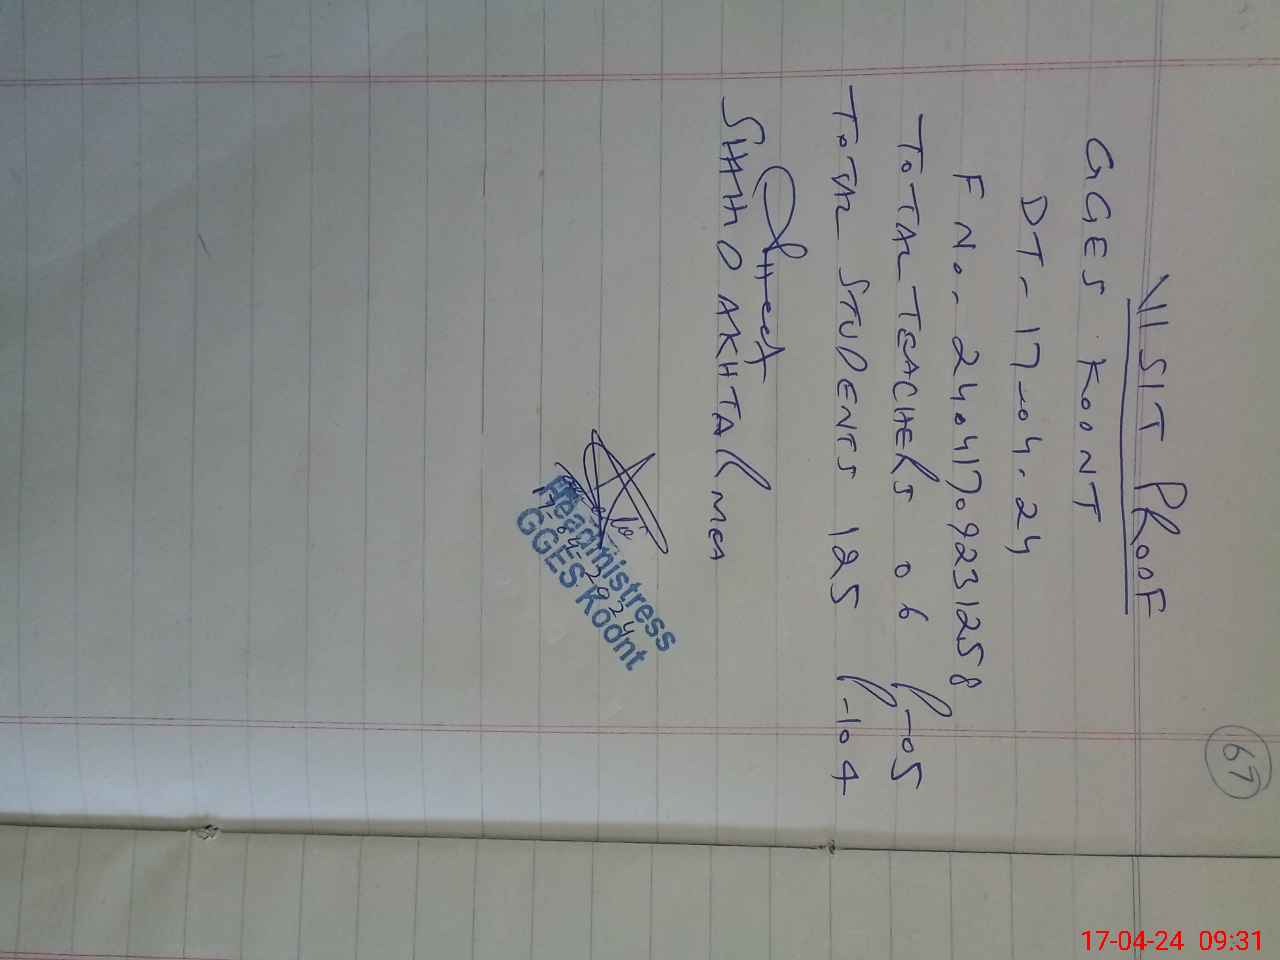 67
VISIT PROOF
GGES KOONT
DT- 17-04-24
F No- 24041709231258
TOTAL TEACHERS 06 P-05
TOTAL STUDENTS 125 P-104
AKHTAR MEA
17-04-2024
Headmistress
GGES Koont
17-04-24 09:31